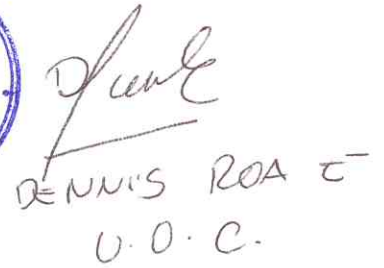 DENNIS ROA
U.O.C.